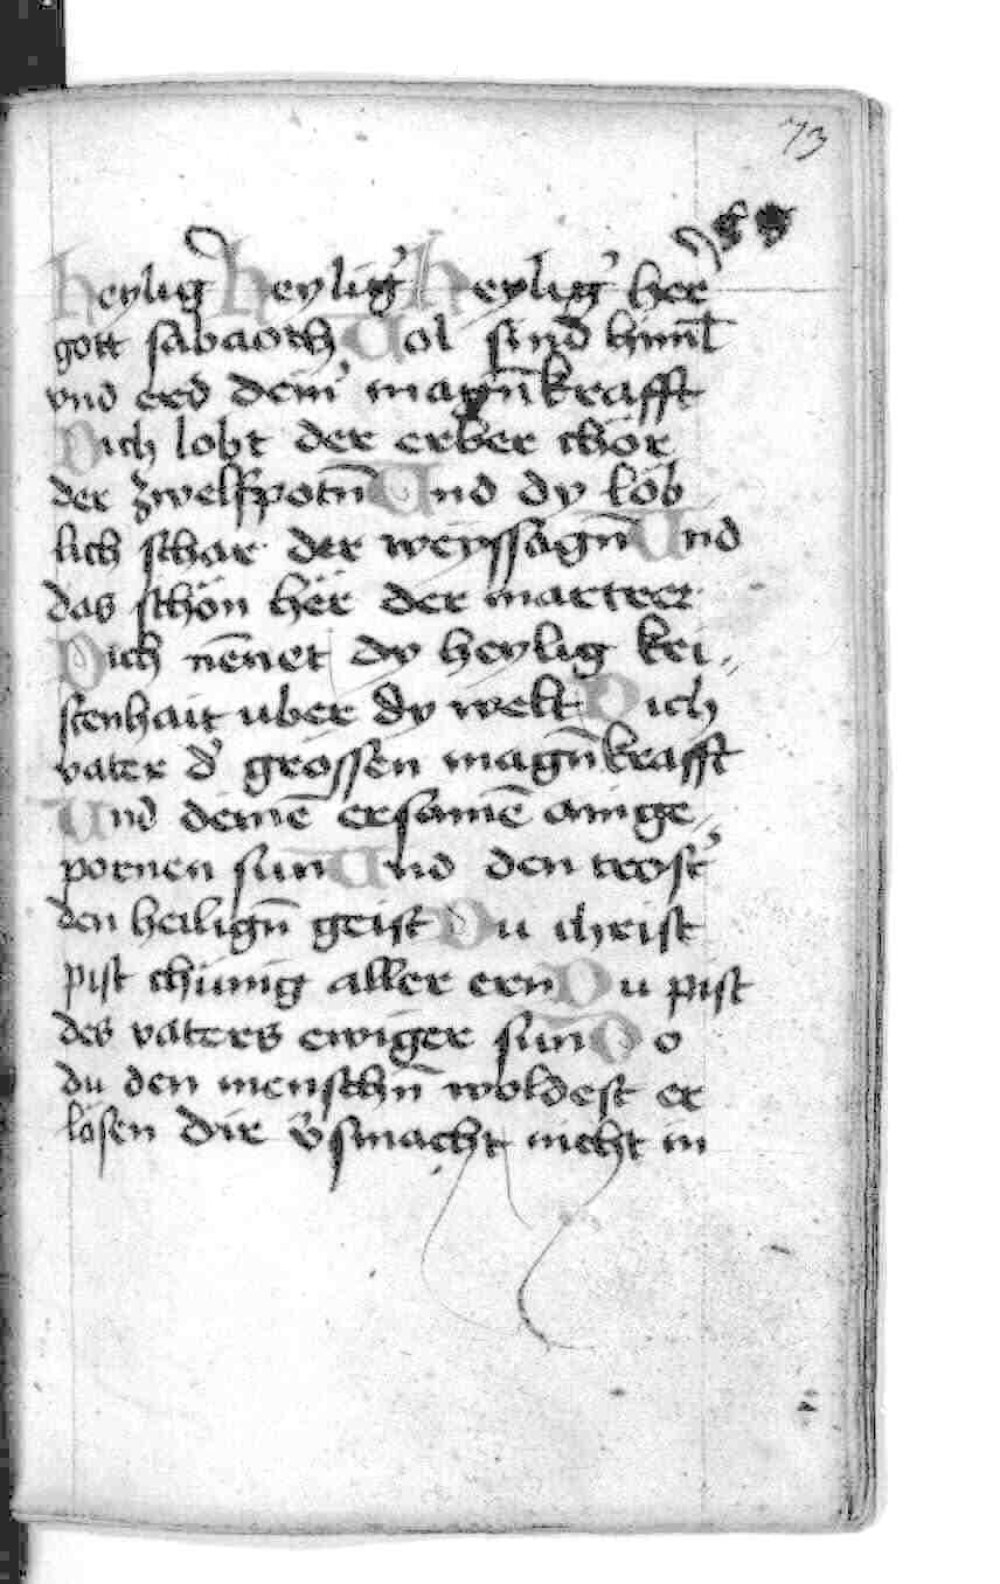 73
Heylig Heylig' Heylig' her'
gott sabaoth Uol sind himl̄
vnd erd dein' magn̄krafft
Dich lobt der erber chör
der zwelfpotn̄ Und dy löb
lich schar der weyssagn̄ Und
das schön hër der martrer
Dich nēnet dy heylig kri„
stenhait uber dy welt Dich
vater d' grossen magn̄krafft
Und deinē ersamē ainge
pornen sun Und den trost'
den heilign̄ geist Du christ
pist chünig aller ern Du pist
des vaters ewiger sun Do
du den menschn̄ woldest er
lösen dir v̄smacht nicht in